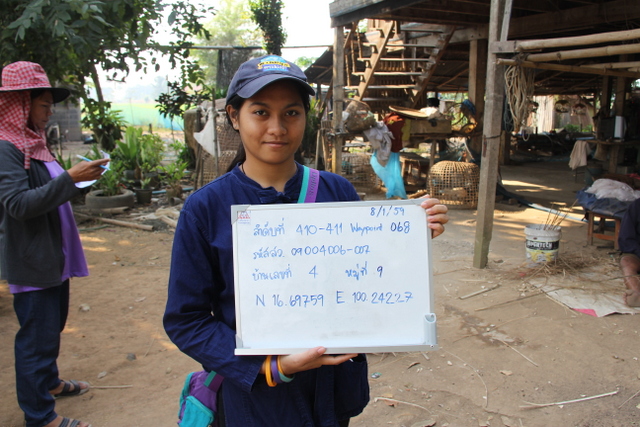 8/1/59
ลำดับที่ 410-411 Waypoint 068
รหัสลว. 09004006-002
บ้านเลขที่ 4 หมู่ที่ 9
N 16.69759 E 100.24227